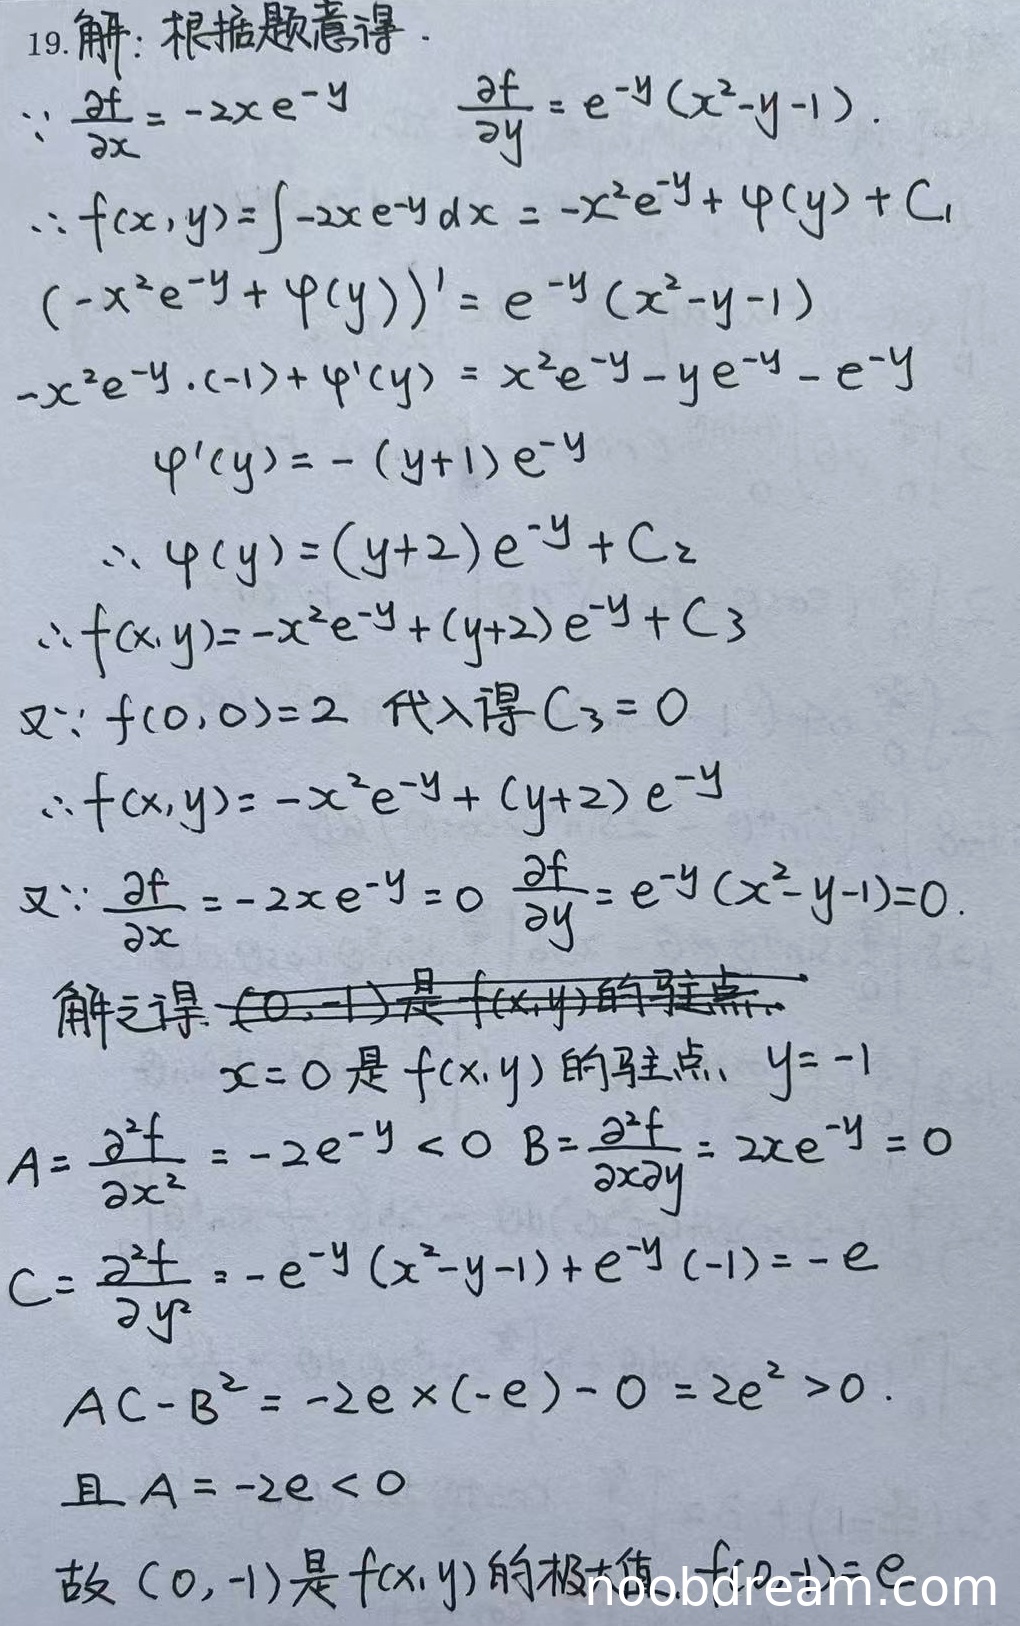 19. 解: 根据题意得.
∵ ∂f/∂x = -2xe^{-y}  ∂f/∂y = e^{-y}(x²-y-1).
∴ f(x,y) = ∫-2xe^{-y}dx = -x²e^{-y} + φ(y) + C₁
(-x²e^{-y} + φ(y))' = e^{-y}(x²-y-1)
-x²e^{-y}·(-1) + φ'(y) = x²e^{-y} - ye^{-y} - e^{-y}
φ'(y) = -(y+1)e^{-y}
∴ φ(y) = (y+2)e^{-y} + C₂
∴ f(x,y) = -x²e^{-y} + (y+2)e^{-y} + C₃
又∵ f(0,0)=2 代入得 C₃=0
∴ f(x,y) = -x²e^{-y} + (y+2)e^{-y}
又∵ ∂f/∂x = -2xe^{-y} = 0  ∂f/∂y = e^{-y}(x²-y-1)=0.
解之得 (0,-1)是f(x,y)的驻点.
x=0 是 f(x,y) 的驻点、 y=-1
A = ∂²f/∂x² = -2e^{-y} < 0  B = ∂²f/∂x∂y = 2xe^{-y} = 0
C = ∂²f/∂y² = -e^{-y}(x²-y-1) + e^{-y}(-1) = -e
AC-B² = -2e×(-e)-0 = 2e² > 0.
且 A = -2e < 0
故 (0,-1)是f(x,y)的极大值. f(0,-1)=e
noobdream.com